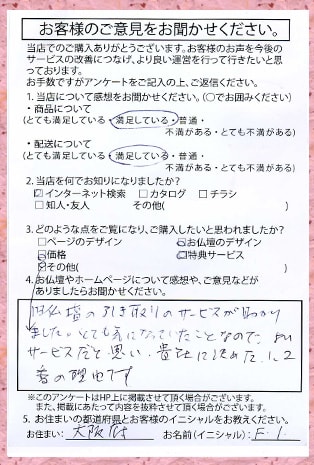 お客様のご意見をお聞かせください。
当店でのご購入ありがとうございます。お客様のお声を今後の
サービスの改善につなげ、より良い運営を行って行きたいと思
っております。
お手数ですがアンケートをご記入の上、ご返信ください。
1. 当店について感想をお聞かせください。(○でお囲みください)
・商品について
(とても満足している・満足している・普通・
不満がある・とても不満がある)
・配送について
(とても満足している・満足している・普通・
不満がある・とても不満がある)
2. 当店を何でお知りになりましたか?
☑インターネット検索 □カタログ □チラシ
□知人・友人 その他( )
3. どのような点をご覧になり、ご購入したいと思われましたか?
□ページのデザイン ☑お仏壇のデザイン
☑価格 ☑特典サービス
☑その他( )
4. お仏壇やホームページについて感想や、ご意見などが
ありましたらお聞かせください。
旧仏壇の引き取りのサービスが助かり
ました。とても気になっていたことなので、良い
サービスだと思い、貴社に決めた
番の理由です
※このアンケートはHP上に掲載させて頂く場合がございます。
また、掲載にあたって内容を抜粋させて頂く場合がございます。
5. お住まいの都道府県とお客様のイニシャルをお教えください。
お住まい: 大阪府 お名前(イニシャル): F.I.